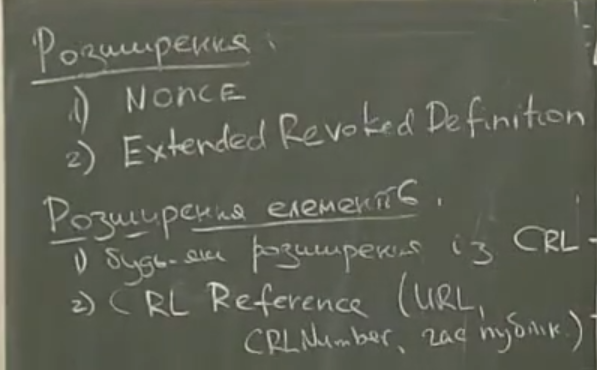 Розширення:
1) Nonce
2) Extended Revoked Definition
Розширення елементів.
1) будь-які розширення із CRL -
2) CRL Reference (URL,
CRLNumber, час публік.)